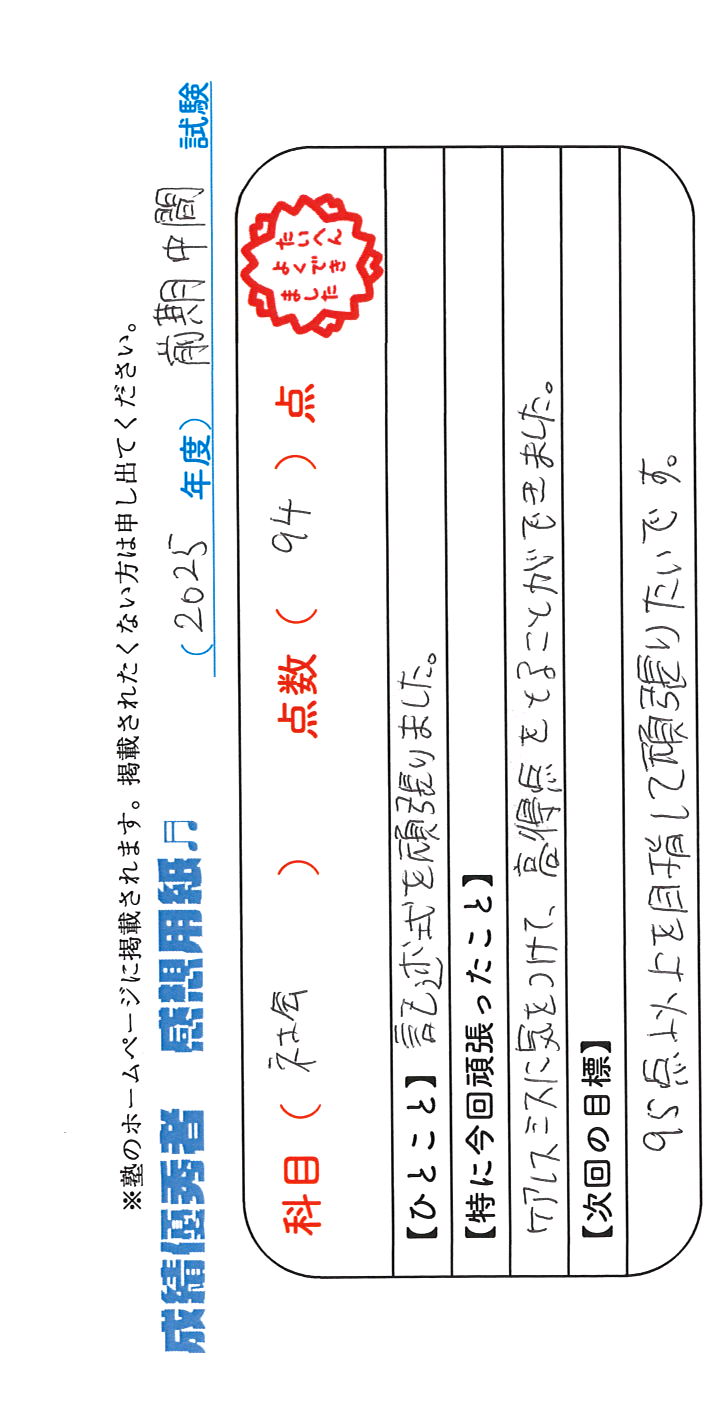 ※塾のホームページに掲載されます。掲載されたくない方は申し出てください。
成績優秀者 感想用紙♫ (2025 年度) 前期中間 試験
科目( 社会 ) 点数( 94 )点
たいへん
よくでき
ました
【ひとこと】記述式を頑張りました。
【特に今回頑張ったこと】
ケアレスミスに気をつけて、高得点をとることができました。
【次回の目標】
95点以上を目指して頑張りたいです。